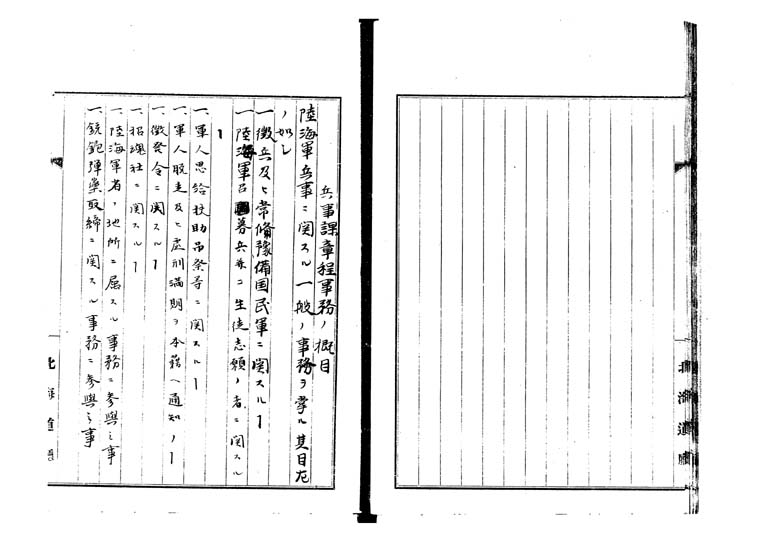 兵事課章程事務ノ概目
陸海軍兵事ニ関スル一般ノ事務ヲ掌ル其目左
ノ如シ
一徴兵及ヒ常備豫備国民軍ニ関スル㕝
一陸海軍召募兵並ニ生徒志願ノ者ニ関スル
㕝
一軍人恩給扶助吊祭等ニ関スル㕝
一軍人脱走及ヒ處刑満期ヲ本籍ヘ通知ノ㕝
一徴発令ニ関スル㕝
一招魂社ニ関スル㕝
一陸海軍省ノ地所ニ属スル事務ニ参與之事
一銃鉋弾薬取締ニ関スル事務ニ参與之事
北海道
北海道